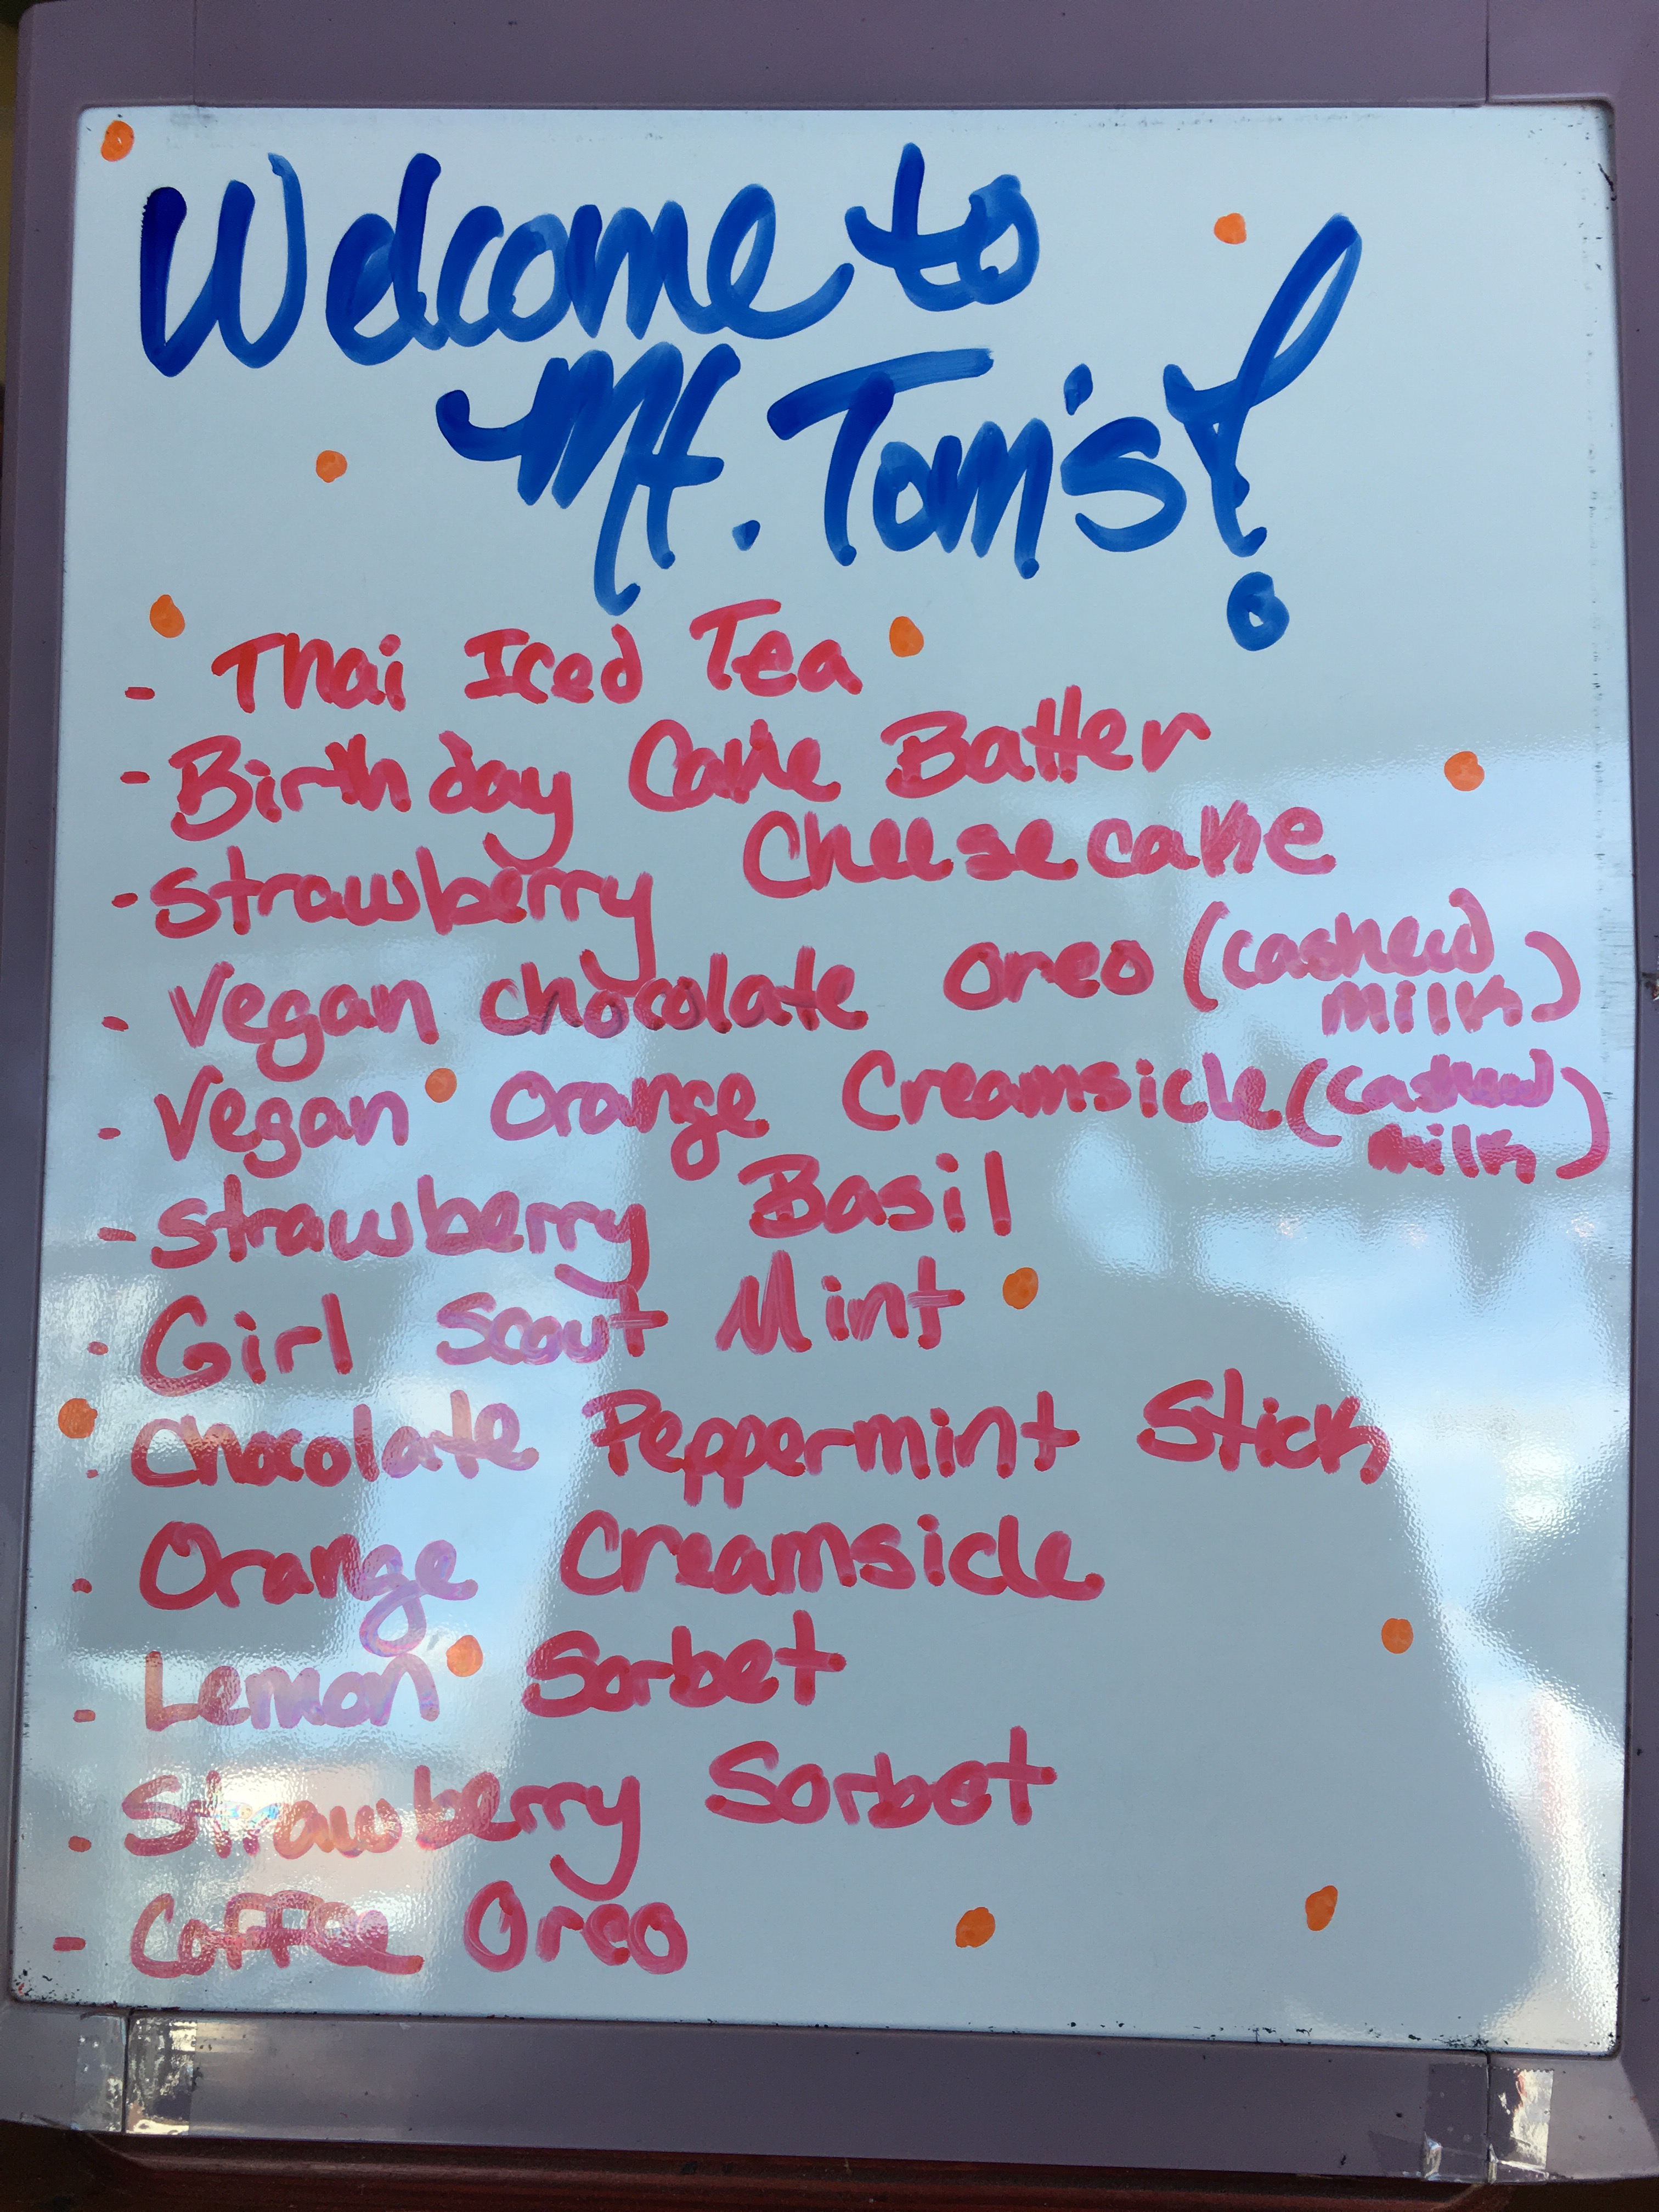 Welcome to
Mt. Tom's!
- Thai Iced Tea
- Birthday Cake Batter
- Strawberry Cheesecake
- Vegan chocolate oreo (cashew
milk)
- Vegan Orange Creamsicle (cashew
milk)
- Strawberry Basil
- Girl Scout Mint
- Chocolate Peppermint Stick
- Orange Creamsicle
- Lemon Sorbet
- Strawberry Sorbet
- Coffee Oreo